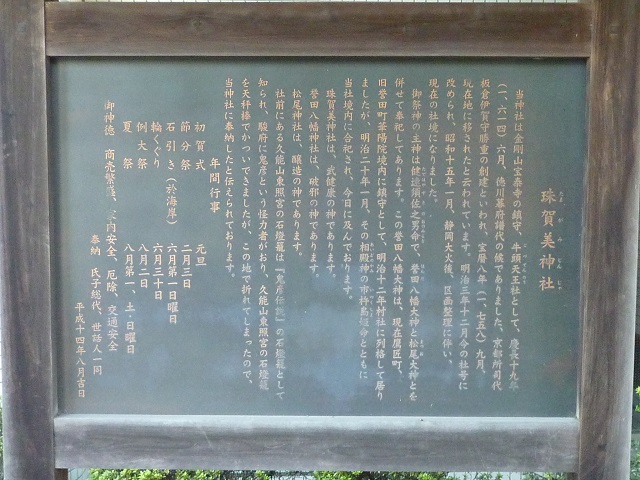 珠賀美神社
たまがみじんじゃ
当神社は金剛山宝泰寺の鎮守、牛頭天王社として、慶長十九年
(一、六一四)六月、徳川幕府譜代の候でありました、京都所司代
板倉伊賀守勝重の創建といわれ、宝暦八年(一、七五八)九月、
現在地に移されたと云われています。明治三年十二月今の社号に
改められ、昭和十五年一月、静岡大火後、区画整理に伴い、
現在の社境になりました。
御祭神の主神は健速須佐之男命で、誉田八幡大神と松尾大神とを
併せて奉祀してあります。この誉田八幡大神は、現在鷹匠町、
旧誉田町華陽院境内に鎮守として、明治十二年村社に列格して居り
ましたが、明治二十年一月、その相殿神の市杵島姫命とともに
当社境内に合祀され、今日に及んでおります。
珠賀美神社は、武健康の神であります。
誉田八幡神社は、破邪の神であります。
松尾神社は、醸造の神であります。
社前にある久能山東照宮の石燈籠は『鬼彦伝説』の石燈籠として
知られ、駿府に鬼彦という怪力者がおり、久能山東照宮の石燈籠
を天秤棒でかついできましたが、この地で折れてしまったので、
当神社に奉納したと伝えられております。
年間行事
初賀式 元旦
節分祭 二月三日
石引き(於海岸) 六月第一日曜日
輪くぐり 六月三十日
例大祭 八月二日
夏祭 八月第一、土・日曜日
御神徳 商売繁盛、家内安全、厄除、交通安全
奉納 氏子総代、世話人一同
平成十四年八月吉日